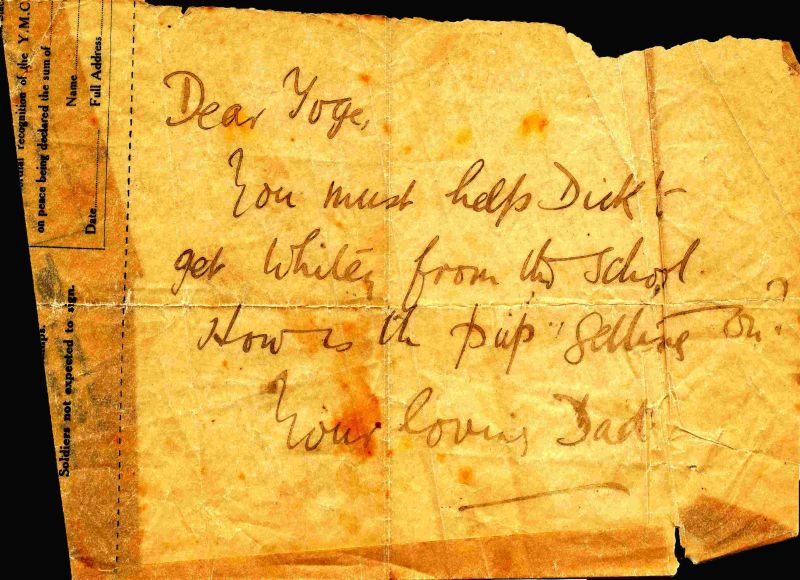 Dear Yoge,
You must help Dick to
get Whitey from the school.
How is the pup getting on?
Your loving Dad
recognition of the Y.M.C
on peace being declared the sum of
Name
Full Address
Date
Soldiers not expected to sign.